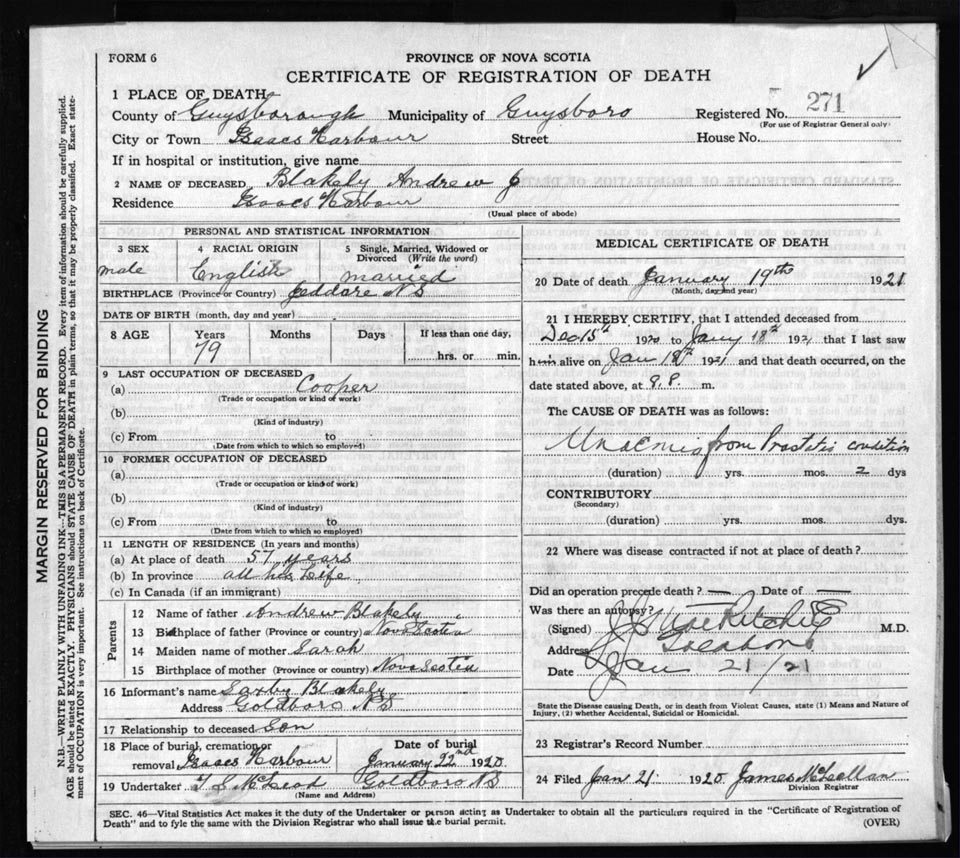 FORM 6
PROVINCE OF NOVA SCOTIA
CERTIFICATE OF REGISTRATION OF DEATH
1 PLACE OF DEATH
County of Guysborough Municipality of Guysboro Registered No. 271
(For use of Registrar General only)
City or Town Isaacs Harbour Street House No.
If in hospital or institution, give name
2 NAME OF DECEASED Blakely Andrew J
Residence Isaacs Harbour
(Usual place of abode)
PERSONAL AND STATISTICAL INFORMATION
3 SEX 4 RACIAL ORIGIN 5 Single, Married, Widowed or Divorced (Write the word)
male English married
BIRTHPLACE (Province or Country) Jeddore NS
DATE OF BIRTH (month, day and year)
8 AGE Years Months Days If less than one day,
79 hrs. or min.
9 LAST OCCUPATION OF DECEASED
(a) Cooper
(Trade or occupation or kind of work)
(b)
(Kind of industry)
(c) From to
(Date from which to which so employed)
10 FORMER OCCUPATION OF DECEASED
(a)
(Trade or occupation or kind of work)
(b)
(Kind of industry)
(c) From to
(Date from which to which so employed)
11 LENGTH OF RESIDENCE (In years and months)
(a) At place of death 57 years
(b) In province all his Life
(c) In Canada (if an immigrant)
Parents
12 Name of father Andrew Blakely
13 Birthplace of father (Province or country) Nova Scotia
14 Maiden name of mother Sarah
15 Birthplace of mother (Province or country) Nova Scotia
16 Informant's name Saxby Blakely
Address Goldboro NS
17 Relationship to deceased Son
18 Place of burial, cremation or removal Isaacs Harbour Date of burial January 22nd 1920
19 Undertaker McLeod Goldboro NS
(Name and Address)
MEDICAL CERTIFICATE OF DEATH
20 Date of death January 19th 1921
(Month, day and year)
21 I HEREBY CERTIFY, that I attended deceased from
Dec 15th 1920 to Jany 18th 1921 that I last saw
him alive on Jan 18th 1921 and that death occurred, on the
date stated above, at 8 P. m.
The CAUSE OF DEATH was as follows:
from condition
(duration) yrs. mos. 2 dys
CONTRIBUTORY
(Secondary)
(duration) yrs. mos. dys.
22 Where was disease contracted if not at place of death?
Did an operation precede death? — Date of —
Was there an autopsy?
(Signed) M.D.
Address
Date Jan. 21/21
State the Disease causing Death, or in death from Violent Causes, state (1) Means and Nature of
Injury, (2) whether Accidental, Suicidal or Homicidal.
23 Registrar's Record Number
24 Filed Jan 21 1920 James McLellan
Division Registrar
SEC. 46—Vital Statistics Act makes it the duty of the Undertaker or person acting as Undertaker to obtain all the particulars required in the "Certificate of Registration of
Death" and to fyle the same with the Division Registrar who shall issue the burial permit. (OVER)
MARGIN RESERVED FOR BINDING
N.B.—WRITE PLAINLY WITH UNFADING INK—THIS IS A PERMANENT RECORD. Every item of information should be carefully supplied.
AGE should be stated EXACTLY. PHYSICIANS should STATE CAUSE OF DEATH in plain terms, so that it may be properly classified. Exact state-
ment of OCCUPATION is very important. See instructions on back of Certificate.